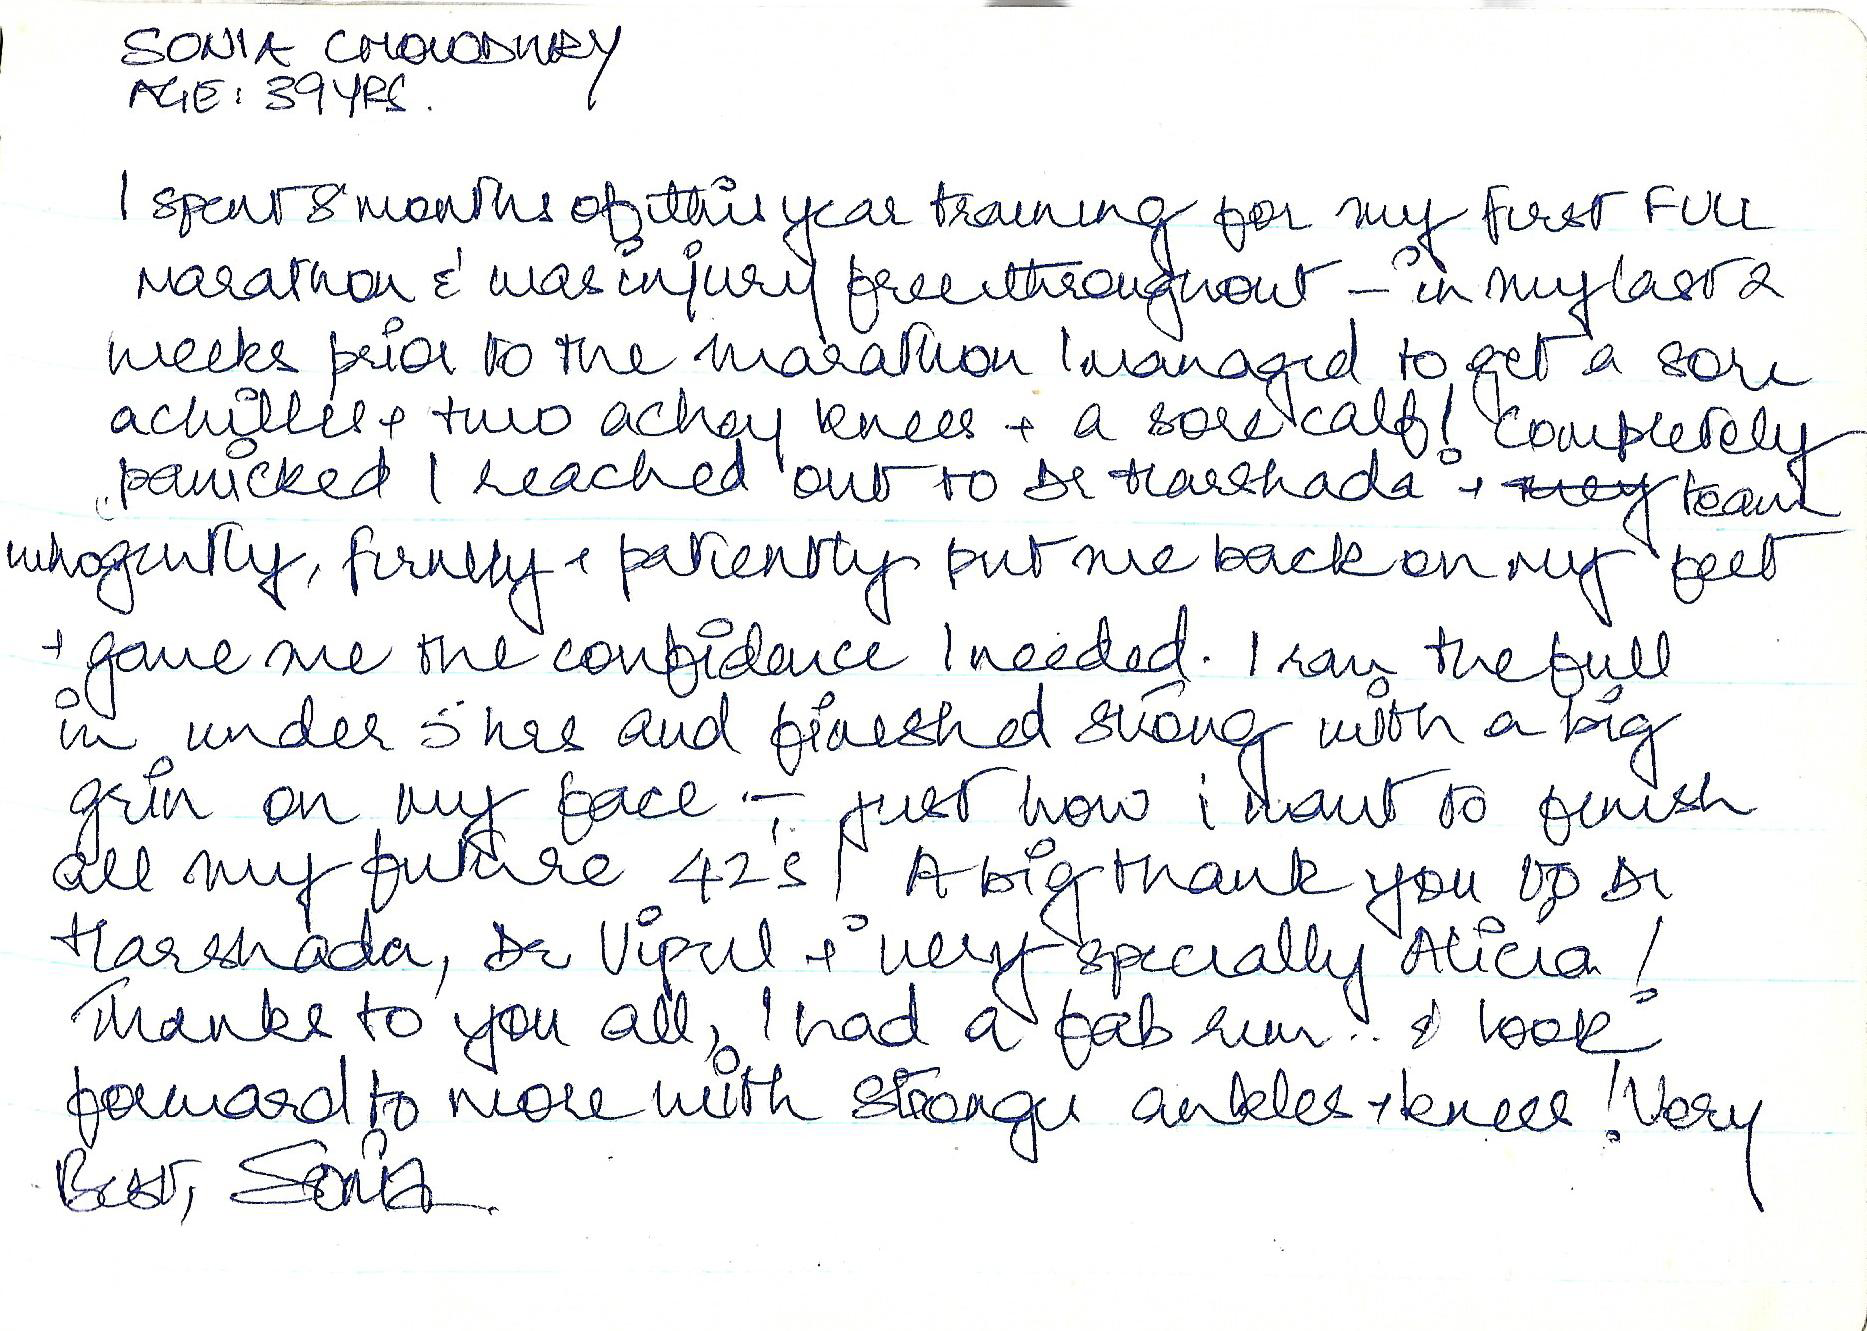 SONIA CHOWDHURY
AGE: 39YRS.
I spent 8 months of this year training for my first FULL
Marathon & was injury free throughout – in my last 2
weeks prior to the marathon I managed to get a sore
achilles + two achey knees + a sore calf! Completely
panicked I reached out to Dr Harshada + they team
who gently, firmly + patiently put me back on my feet
+ gave me the confidence I needed. I ran the full
in under 5 hrs and finished strong with a big
grin on my face – just how i want to finish
all my future 42's! A big thank you to Dr
Harshada, Dr Vipul + very specially Alicia!
Thanks to you all, I had a fab run.. & look
forward to more with stronger ankles + knees! Very
Best, Sonia